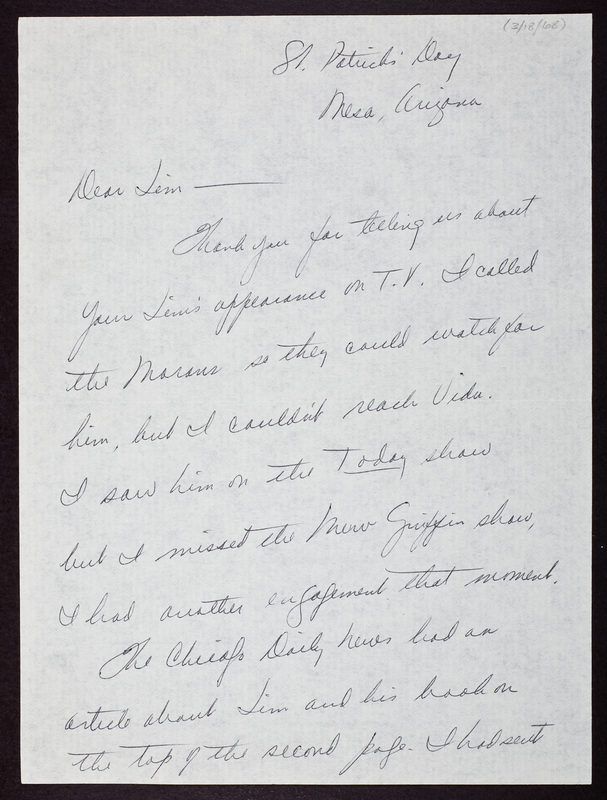 (3/18/68)
St. Patrick's Day
Mesa, Arizona
Dear Jim —
Thank you for telling us about
your Jim's appearance on T.V. I called
the Morans so they could watch for
him, but I couldn't reach Vida.
I saw him on the Today show
but I missed the Merv Griffin show,
I had another engagement that moment.
The Chicago Daily News had an
article about Jim and his book on
the top of the second page. I had sent